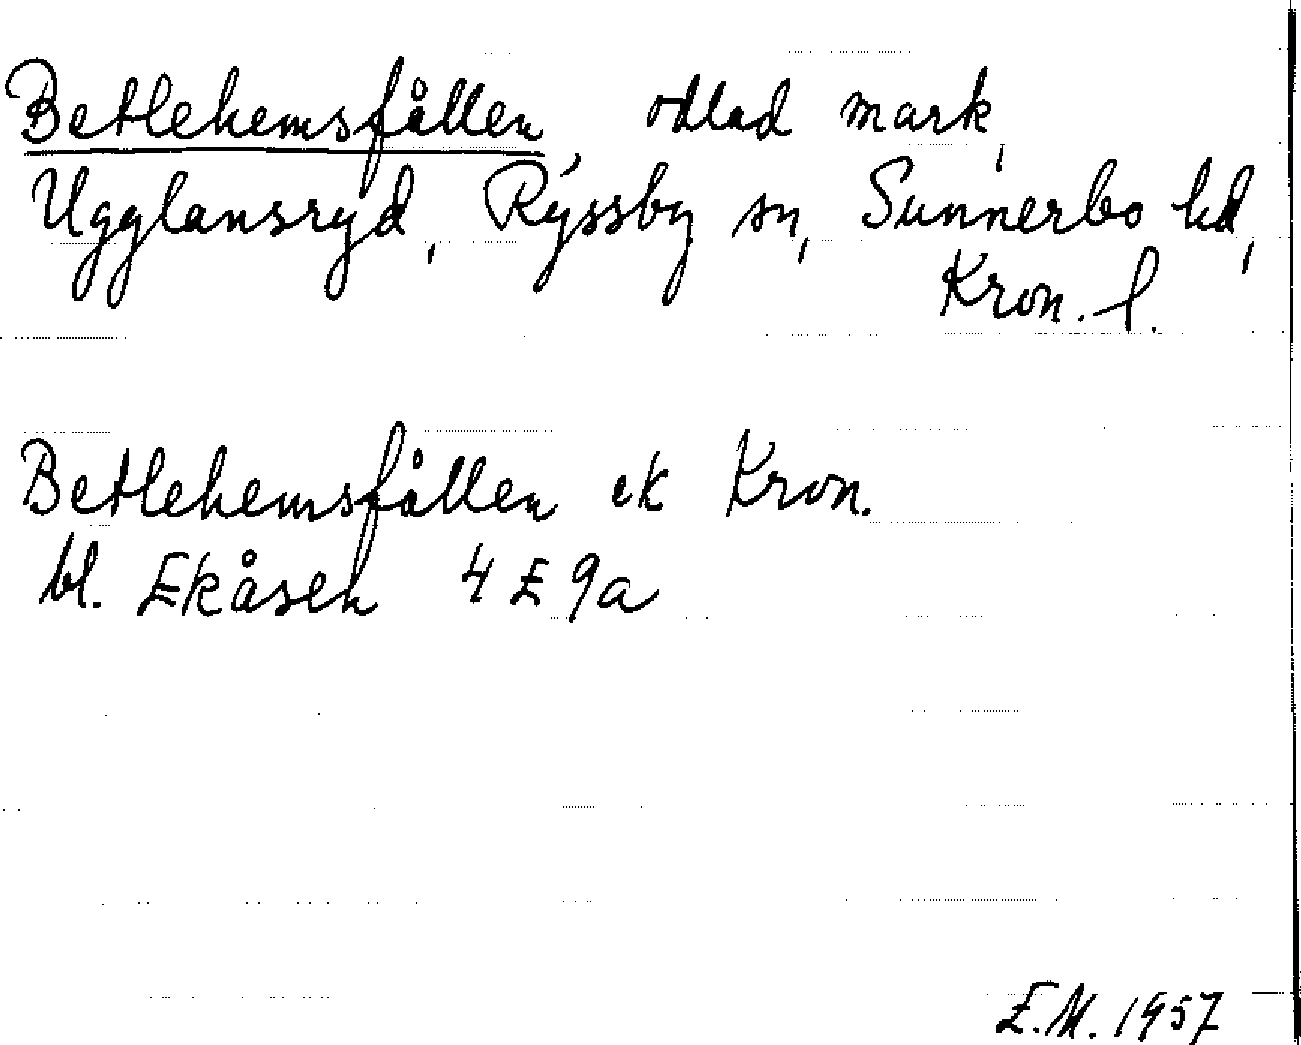 Betlehemsfållen, odlad mark,
Ugglansryd, Ryssby sn, Sunnerbo hd,
Kron. l.
Betlehemsfållen ek Kron.
bl. Ekåsen 4 E 9a
E.M. 1957